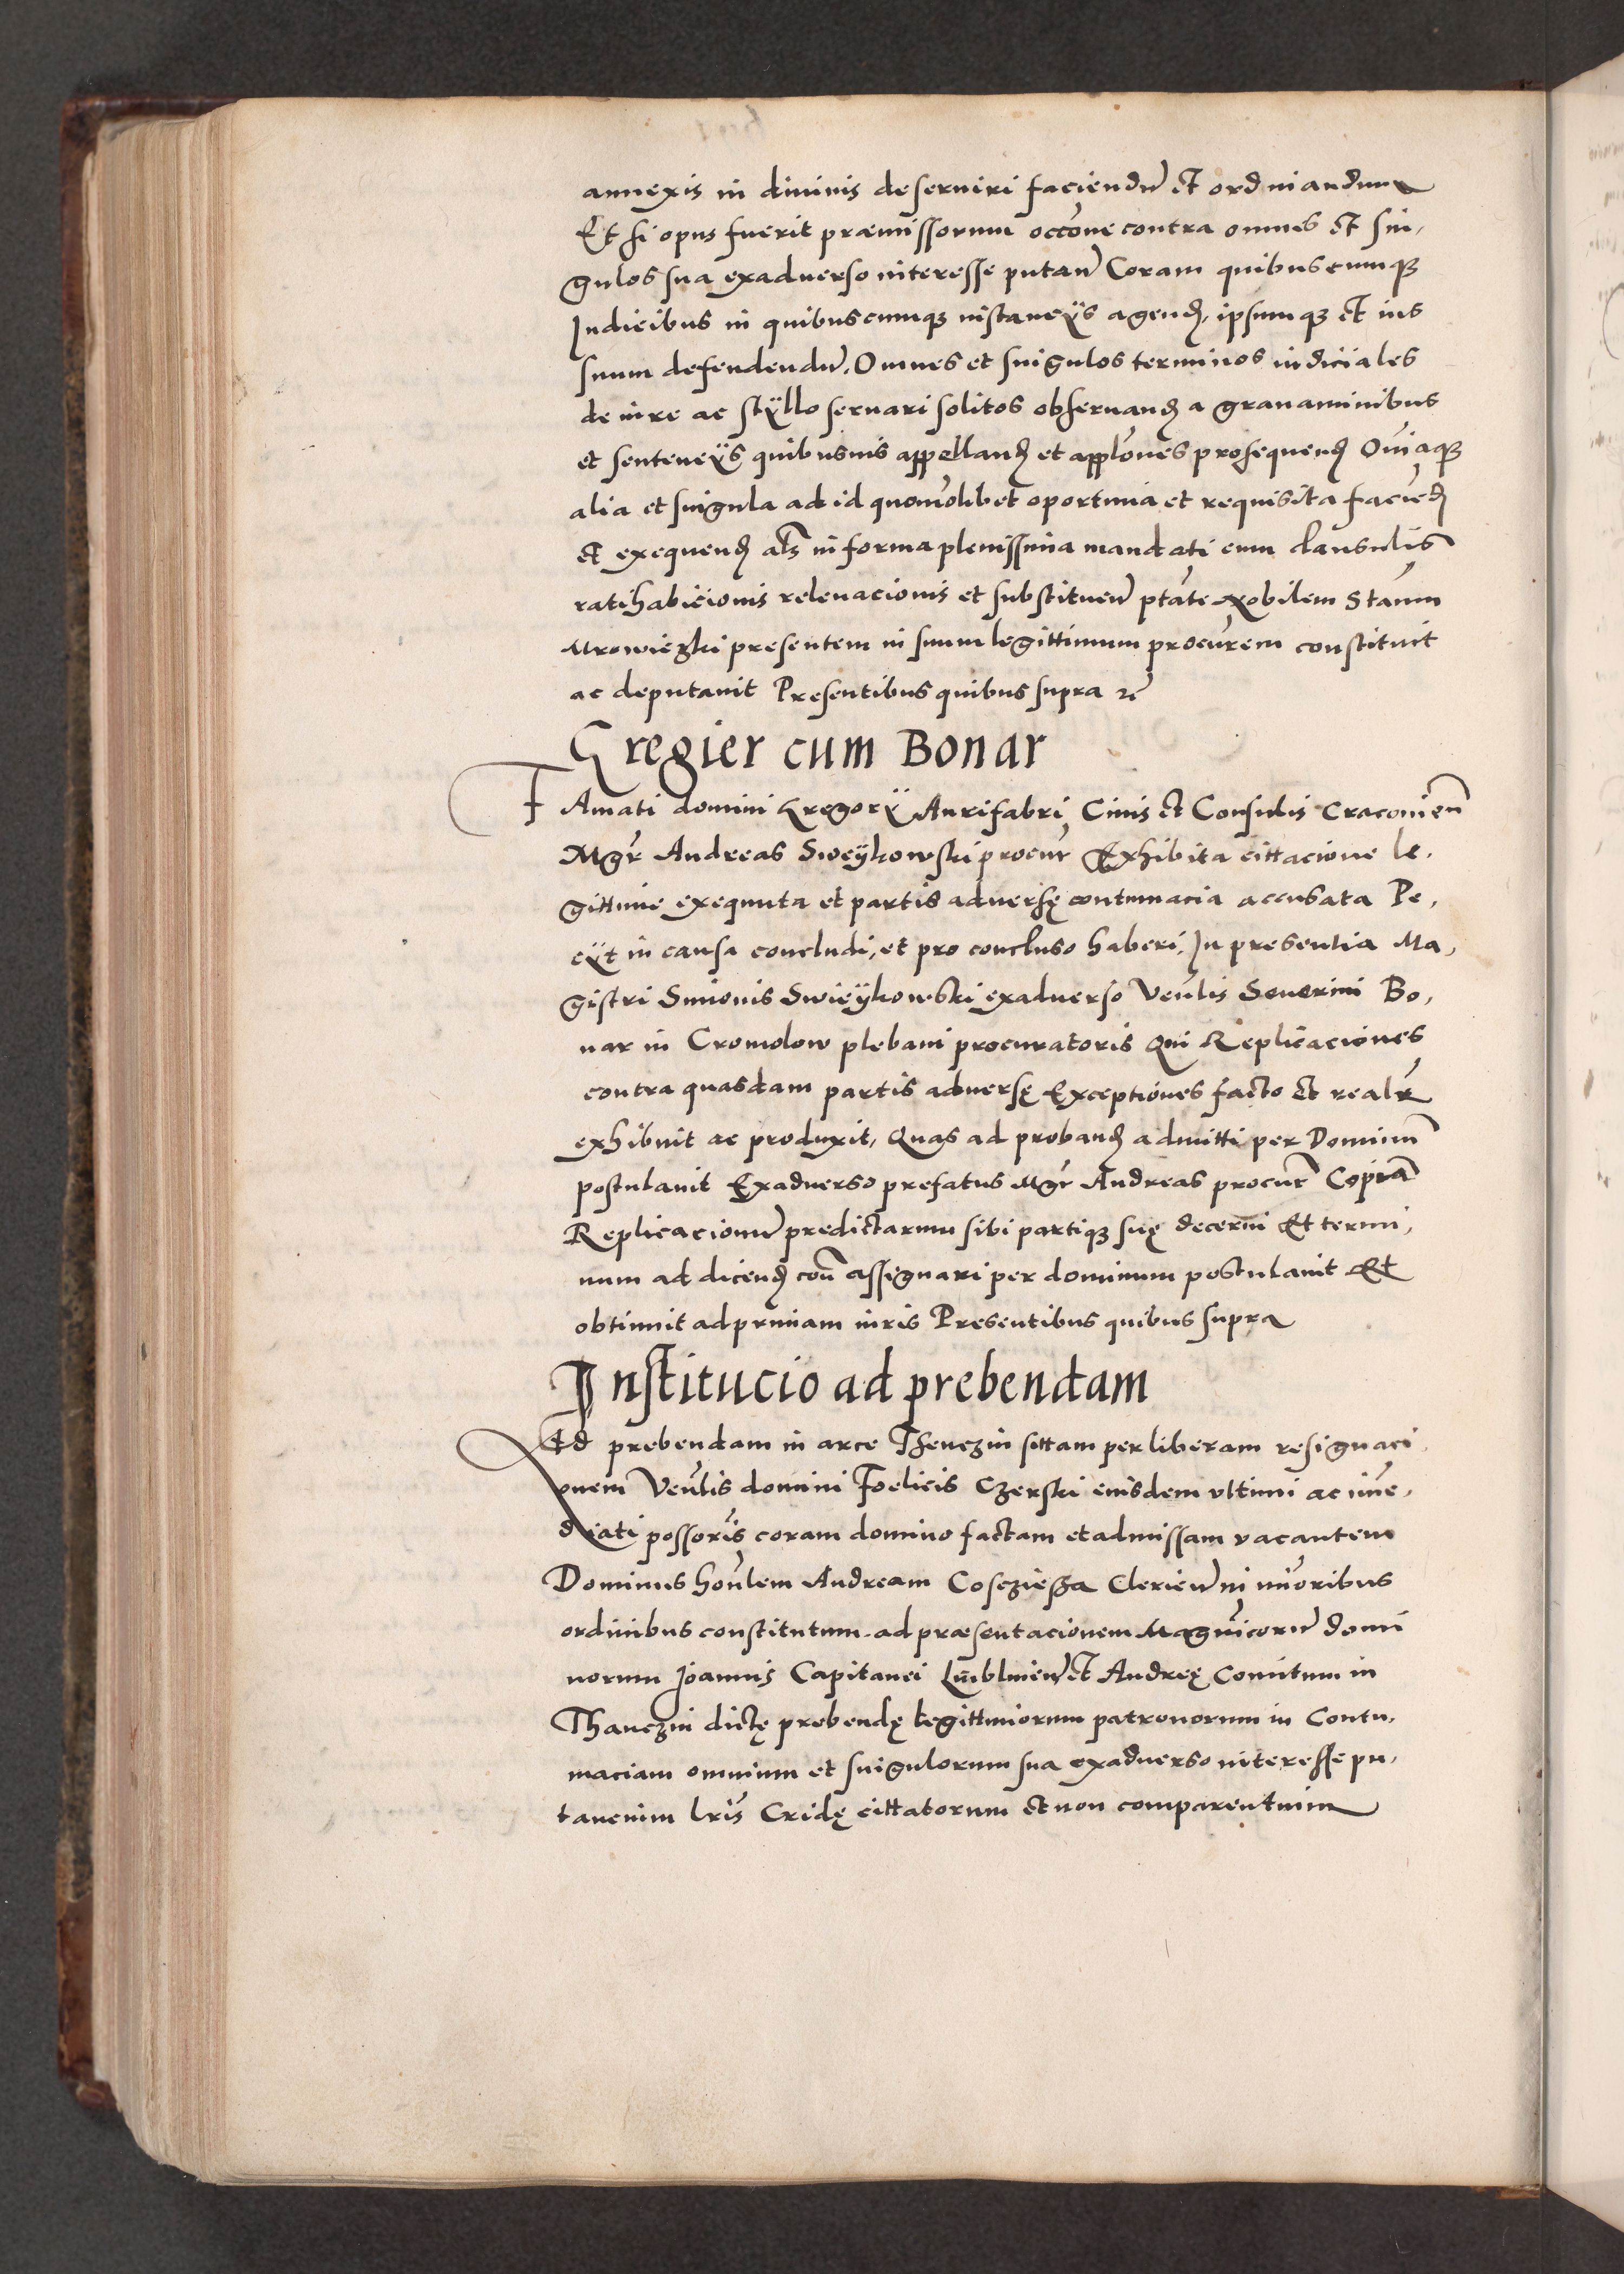 annexis in divinis deserviri faciendũ et ordinandum
Et si opus fuerit præmissorum occõne contra omnes et sin,
gulos sua exadverso interesse putan̄ Coram quibuscumqȝ
Iudicibus in quibuscumqȝ instancÿs agend, ipsumqȝ et ius
suum defendendũ. Omnes et singulos terminos iudiciales
de iure ac stÿllo servari solitos observand a gravaminibus
et sentencÿs quibusvis appelland et applões prosequend Oĩaqȝ
alia et singula ad id quomõlibet oportuna et requisita faciend
et exequend als in forma plenissima mandati cum clausulis
ratihabicionis relevacionis et substituen̄ ptãte Nobilem Stãum
Mrowiczki presentem in suum legittimum procurem constituit
ac deputavit Presentibus quibus supra ꝛc
Gregier cum Bonar
FAmati domini Gregorÿ Aurifabri Civis et Consulis Cracovien̄
Mgr Andreas Sweÿkowski procur Exhibita cittacione le,
gittime exequuta et partis adversę contumacia accusata Pe,
cÿt in causa concludi, et pro concluso haberi. In presentia Ma,
gistri Simonis Swieÿkowski exadverso Venlis Severini Bo,
nar in Cromolow plebani procuratoris Qui Replicaciones
contra quasdam partis adversę Exceptiones facto et realr
exhibuit ac produxit, Quas ad proband admitti per Dominũ
postulavit Exadverso prefatus Mgr Andreas procur Copiã
Replicacionũ predictarum sibi partiqȝ suę decerni Et termi,
num ad dicend coñ assignari per dominum postulavit Et
obtinuit ad primam iuris Presentibus quibus supra
Institucio ad prebendam
Ad prebendam in arce Thenczin sittam per liberam resignaci,
onem Venlis domini Foelicis Czerski eiusdem ultimi ac im̃e,
diati possoris coram domino factam et admissam vacantem
Dominus honlem Andream Cosczießa Clericũ in mĩoribus
ordinibus constitutum ad præsentacionem Magnĩcorũ domi
norum Joannis Capitanei Lublinen̄ et Andreę Comitum in
Thanczin dictę prebendę legittimorum patronorum in Contu,
maciam omnium et singulorum sua exadverso interesse pu,
tancium lris Cridę cittatorum et non comparentium